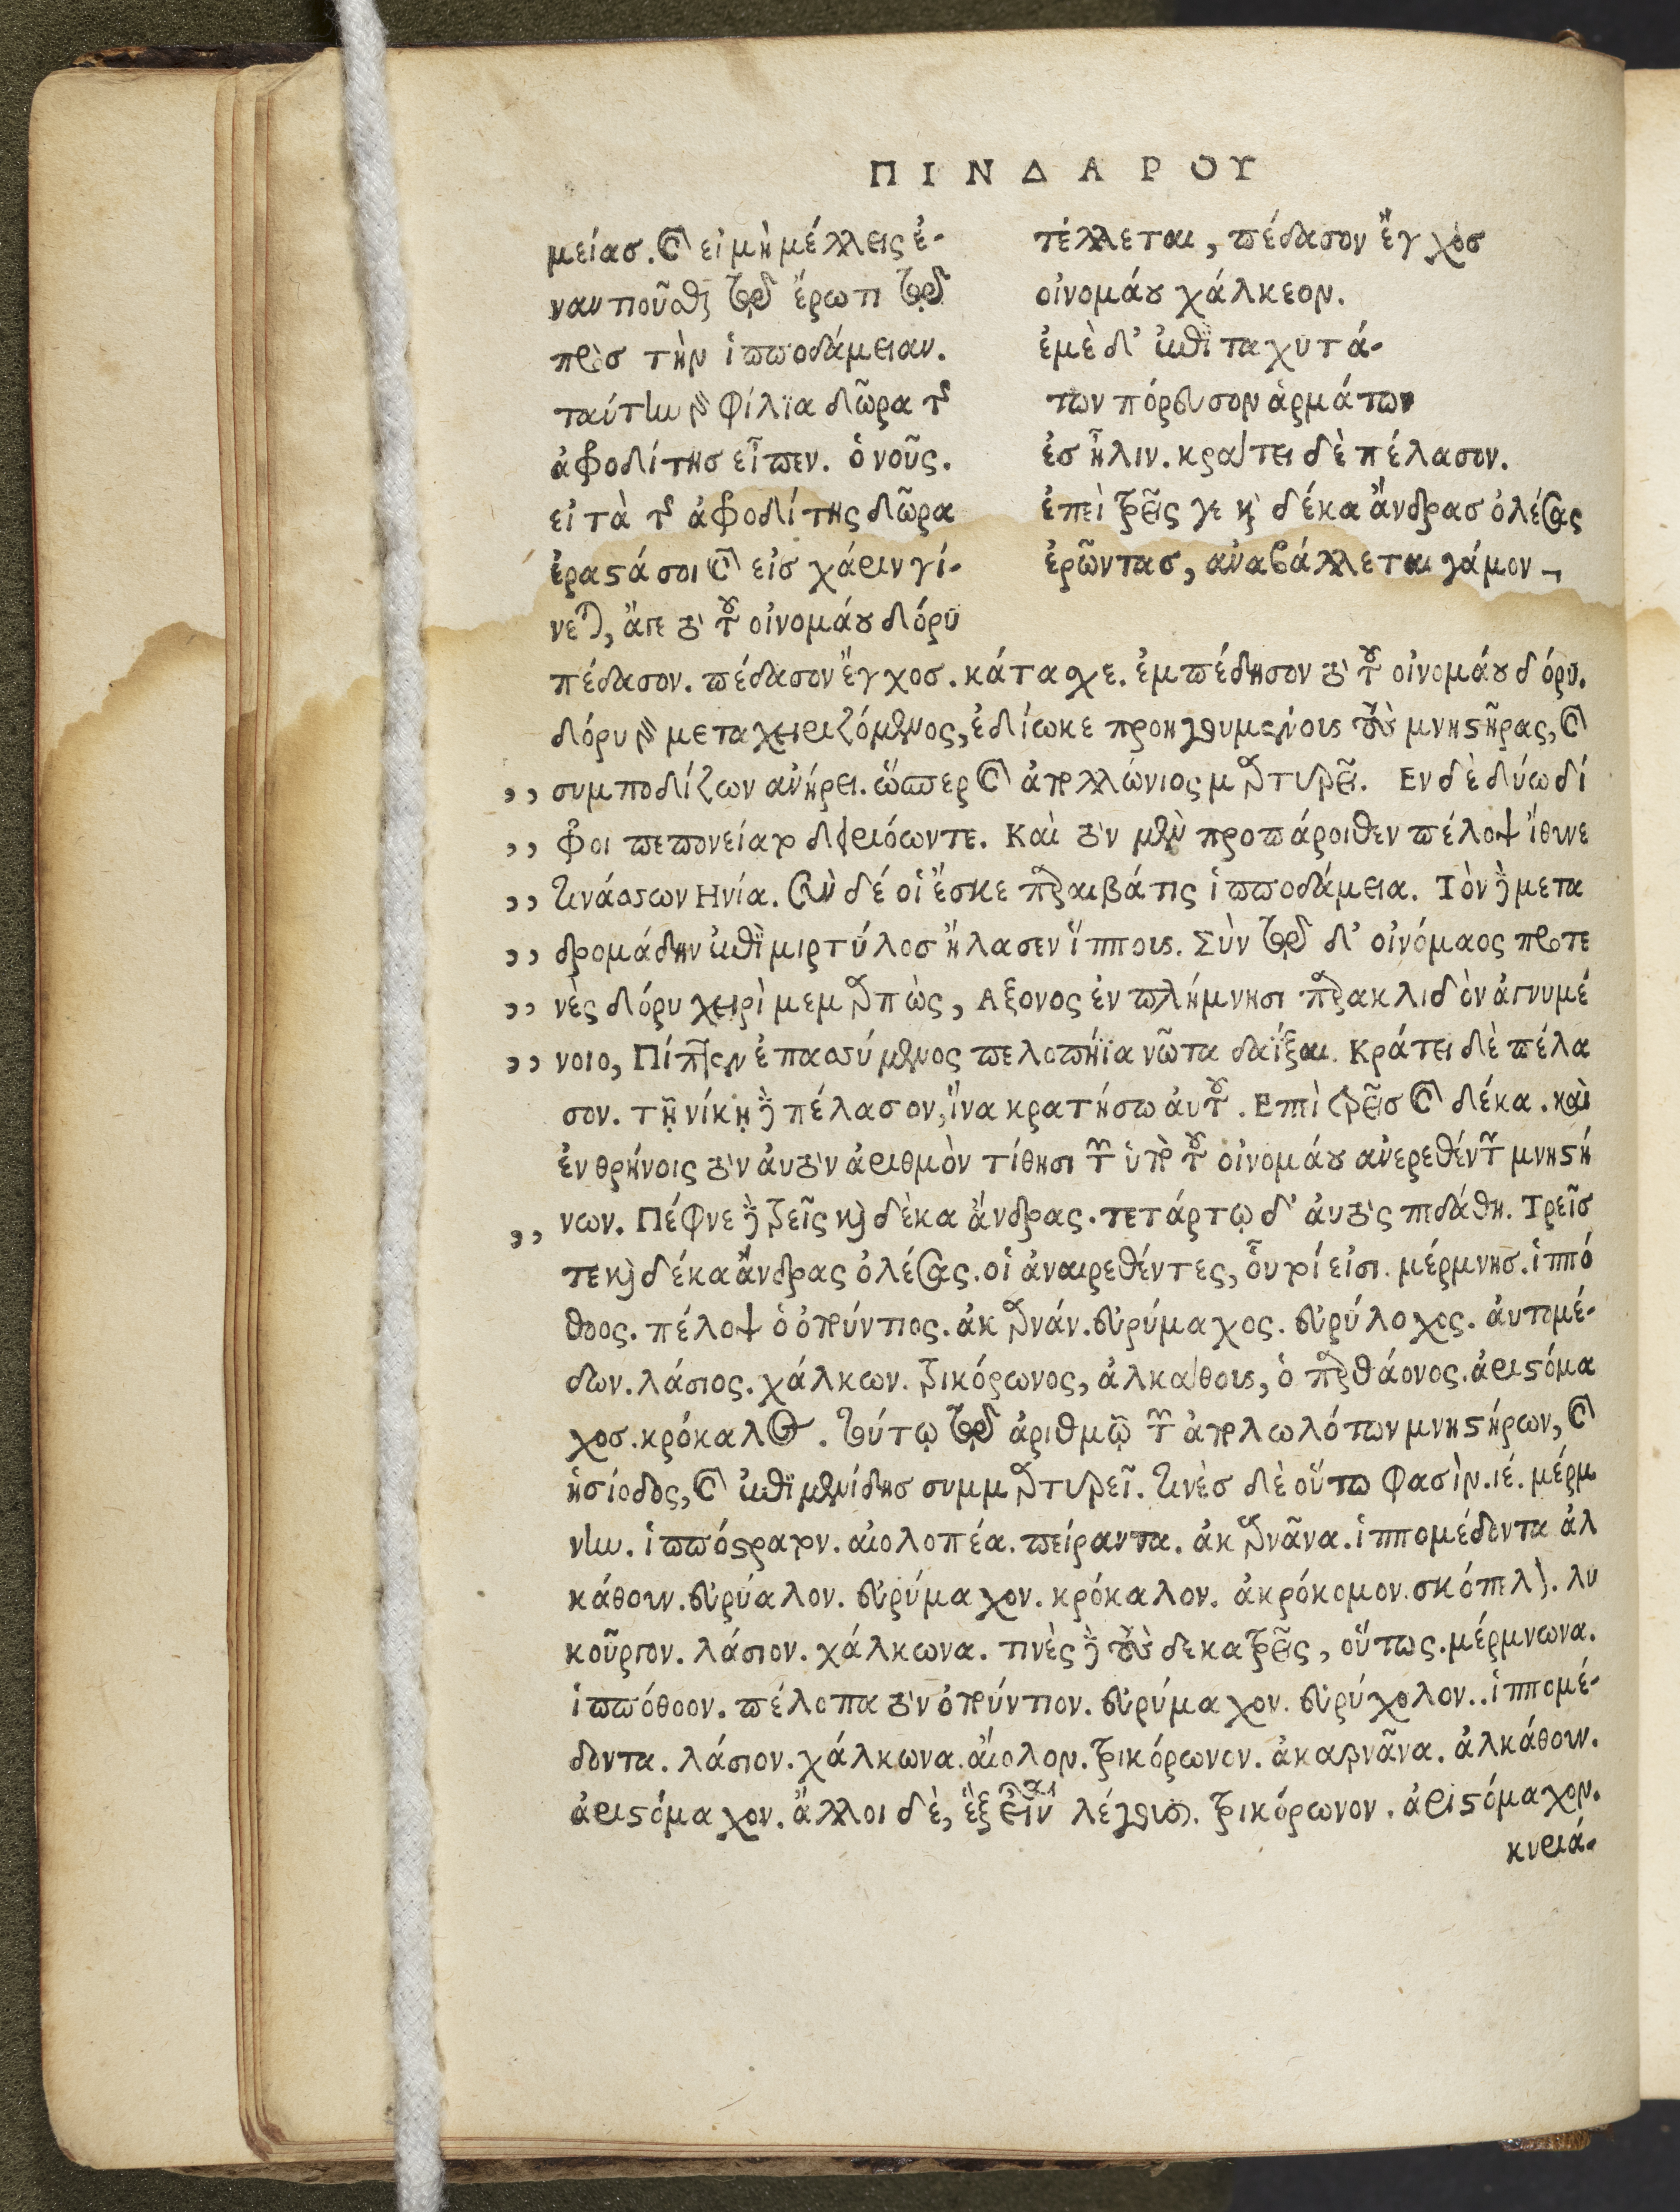 ΠΙΝΔΑΡΟΥ
μείασ. καὶ εἰ μὴ μέλλεις ἐ-
ναντιοῦσθαι τῷ ἔρωτι τῷ
πρὸσ τὴν ἱπποδάμειαν.
ταύτην γὰρ φίλϊα δῶρα τῆς
ἀφροδίτησ εἶπεν. ὁ νοῦς.
εἰ τὰ τῆς ἀφροδίτης δῶρα
ἐραστά σοι καὶ εἰσ χάριν γί-
νεται, ἄγε τὸ τοῦ οἰνομάου δόρυ
τέλλεται, πέδασον ἔγχοσ
οἰνομάου χάλκεον.
ἐμὲ δ' ἐπὶ ταχυτά-
των πόρευσον ἁρμάτων
ἐσ ἦλιν. κράτει δὲ πέλασον.
ἐπεὶ τρεῖς γε καὶ δέκα ἄνδρασ ὀλέσας
ἐρῶντασ, ἀναβάλλεται γάμον
πέδασον. πέδασον ἔγχοσ. κάτασχε. ἐμπέδησον τὸ τοῦ οἰνομάου δόρυ.
δόρυ γὰρ μεταχειριζόμενος, ἐδίωκε προηγουμένους τοὺς μνηστῆρας, καὶ
,, συμποδίζων ἀνήρει. ὥσπερ καὶ ἀπολλώνιος μαρτυρεῖ. Εν δὲ δύω δί
,, φροι πεπονείατο δηριόωντε. Καὶ τὸν μὲν προπάροιθεν πέλοψ ἴθυνε
,, τινάσσων Ηνία. σὺν δέ οἱ ἔσκε παραιβάτις ἱπποδάμεια. Τὸν δὲ μετα
,, δρομάδην ἐπὶ μιρτύλοσ ἤλασεν ἵππους. Σὺν τῷ δ' οἰνόμαος προτε
,, νὲς δόρυ χειρὶ μεμαρπὼς, Αξονος ἐν πλήμνησι παρακλιδὸν ἀγνυμέ
,, νοιο, Πίπτεν ἐπασσύμενος πελοπήϊα νῶτα δαΐξαι. Κράτει δὲ πέλα
σον. τῇ νίκῃ δὲ πέλασον, ἵνα κρατήσω αὐτοῦ. Επὶ τρεῖσ καὶ δέκα. καὶ
ἐν θρήνοις τὸν αὐτὸν ἀριθμὸν τίθησι τῶν ὑπὸ τοῦ οἰνομάου ἀνερεθέντων μνηστή
,, νων. Πέφνε δὲ τρεῖς καὶ δὲκα ἄνδρας. τετάρτῳ δ' αὐτὸς πεδάθη. Τρεῖσ
τε καὶ δέκα ἄνδρας ὀλέσας. οἱ ἀναιρεθέντες, οὗτοί εἰσι. μέρμνησ. ἱππό
θοος. πέλοψ ὁ ὀπούντιος. ἀκαρνάν. εὐρύμαχος. εὐρύλοχος. αὐτομέ-
δων. λάσιος. χάλκων. τρικόρωνος, ἀλκάθους, ὁ παρθάονος. ἀριστόμα
χοσ. κρόκαλος. τούτῳ τῷ ἀριθμῷ τῶν ἀπολωλότων μνηστήρων, καὶ
ἡσίοδος, καὶ ἐπὶ μενίδησ συμμαρτυρεῖ. τινὲσ δὲ οὕτω φασὶν. ιέ. μέρμ
νην. ἱππόστρατον. αἰολοπέα. πείραντα. ἀκαρνᾶνα. ἱππομέδοντα ἀλ
κάθουν. εὐρύαλον. εὐρύμαχον. κρόκαλον. ἀκρόκομον. σκόπελον. λυ
κοῦργον. λάσιον. χάλκωνα. τινὲς δὲ τοὺς δεκατρεῖς, οὕτως. μέρμνωνα.
ἱππόθοον. πέλοπα τὸν ὀπούντιον. εὐρύμαχον. εὐρύχολον. . ἱππομέ-
δοντα. λάσιον. χάλκωνα. αἴολον. τρικόρωνον. ἀκαρνᾶνα. ἀλκάθουν.
ἀριστόμαχον. ἄλλοι δὲ, ἓξ εἶναι λέγουσι. τρικόρωνον. ἀριστόμαχον.
κυριά-